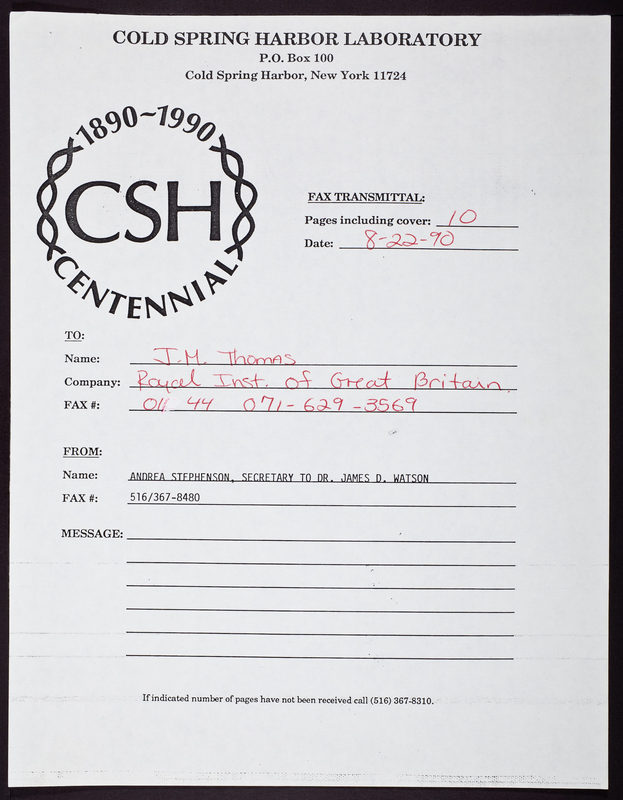 COLD SPRING HARBOR LABORATORY
P.O. Box 100
Cold Spring Harbor, New York 11724
1890~1990
CSH
CENTENNIAL
FAX TRANSMITTAL:
Pages including cover: 10
Date: 8-22-90
TO:
Name: J.M. Thomas
Company: Royal Inst. of Great Britain
FAX #: 011 44 071-629-3569
FROM:
Name: ANDREA STEPHENSON, SECRETARY TO DR. JAMES D. WATSON
FAX #: 516/367-8480
MESSAGE:
If indicated number of pages have not been received call (516) 367-8310.